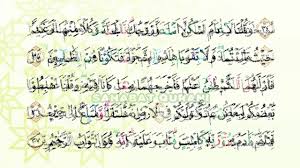 ٣٤ وَقُلْنَا يَٰٓـَٔادَمُ ٱسْكُنْ أَنتَ وَزَوْجُكَ ٱلْجَنَّةَ وَكُلَا مِنْهَا رَغَدًا
حَيْثُ شِئْتُمَا وَلَا تَقْرَبَا هَٰذِهِ ٱلشَّجَرَةَ فَتَكُونَا مِنَ ٱلظَّٰلِمِينَ ٣٥
فَأَزَلَّهُمَا ٱلشَّيْطَٰنُ عَنْهَا فَأَخْرَجَهُمَا مِمَّا كَانَا فِيهِ وَقُلْنَا ٱهْبِطُوا۟
بَعْضُكُمْ لِبَعْضٍ عَدُوٌّ وَلَكُمْ فِى ٱلْأَرْضِ مُسْتَقَرٌّ وَمَتَٰعٌ إِلَىٰ حِينٍ ٣٦
فَتَلَقَّىٰٓ ءَادَمُ مِن رَّبِّهِۦ كَلِمَٰتٍ فَتَابَ عَلَيْهِ إِنَّهُۥ هُوَ ٱلتَّوَّابُ ٱلرَّحِيمُ ٣٧